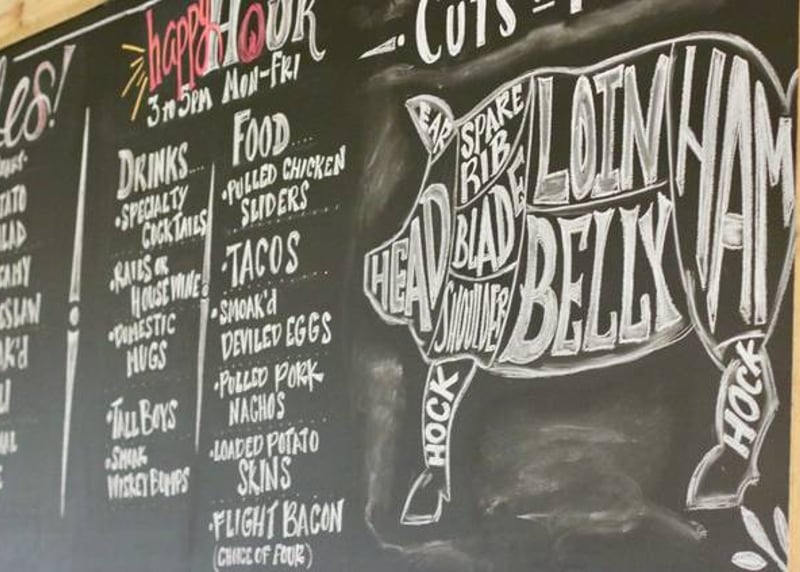 happy HOUR
3 to 5PM MON-FRI
DRINKS
•SPECIALTY
COCKTAILS
•RAILS OR
HOUSE WINE
•DOMESTIC
MUGS
•TALL BOYS
•SMOAK
WISKEY BUMPS
FOOD
•PULLED CHICKEN
SLIDERS
•TACOS
•SMOAK'd
DEVILED EGGS
•PULLED PORK
NACHOS
•LOADED POTATO
SKINS
•FLIGHT BACON
(CHOICE OF FOUR)
CUTS
EAR
HEAD
SPARE
RIB
BLADE
SHOULDER
LOIN
BELLY
HAM
HOCK
HOCK